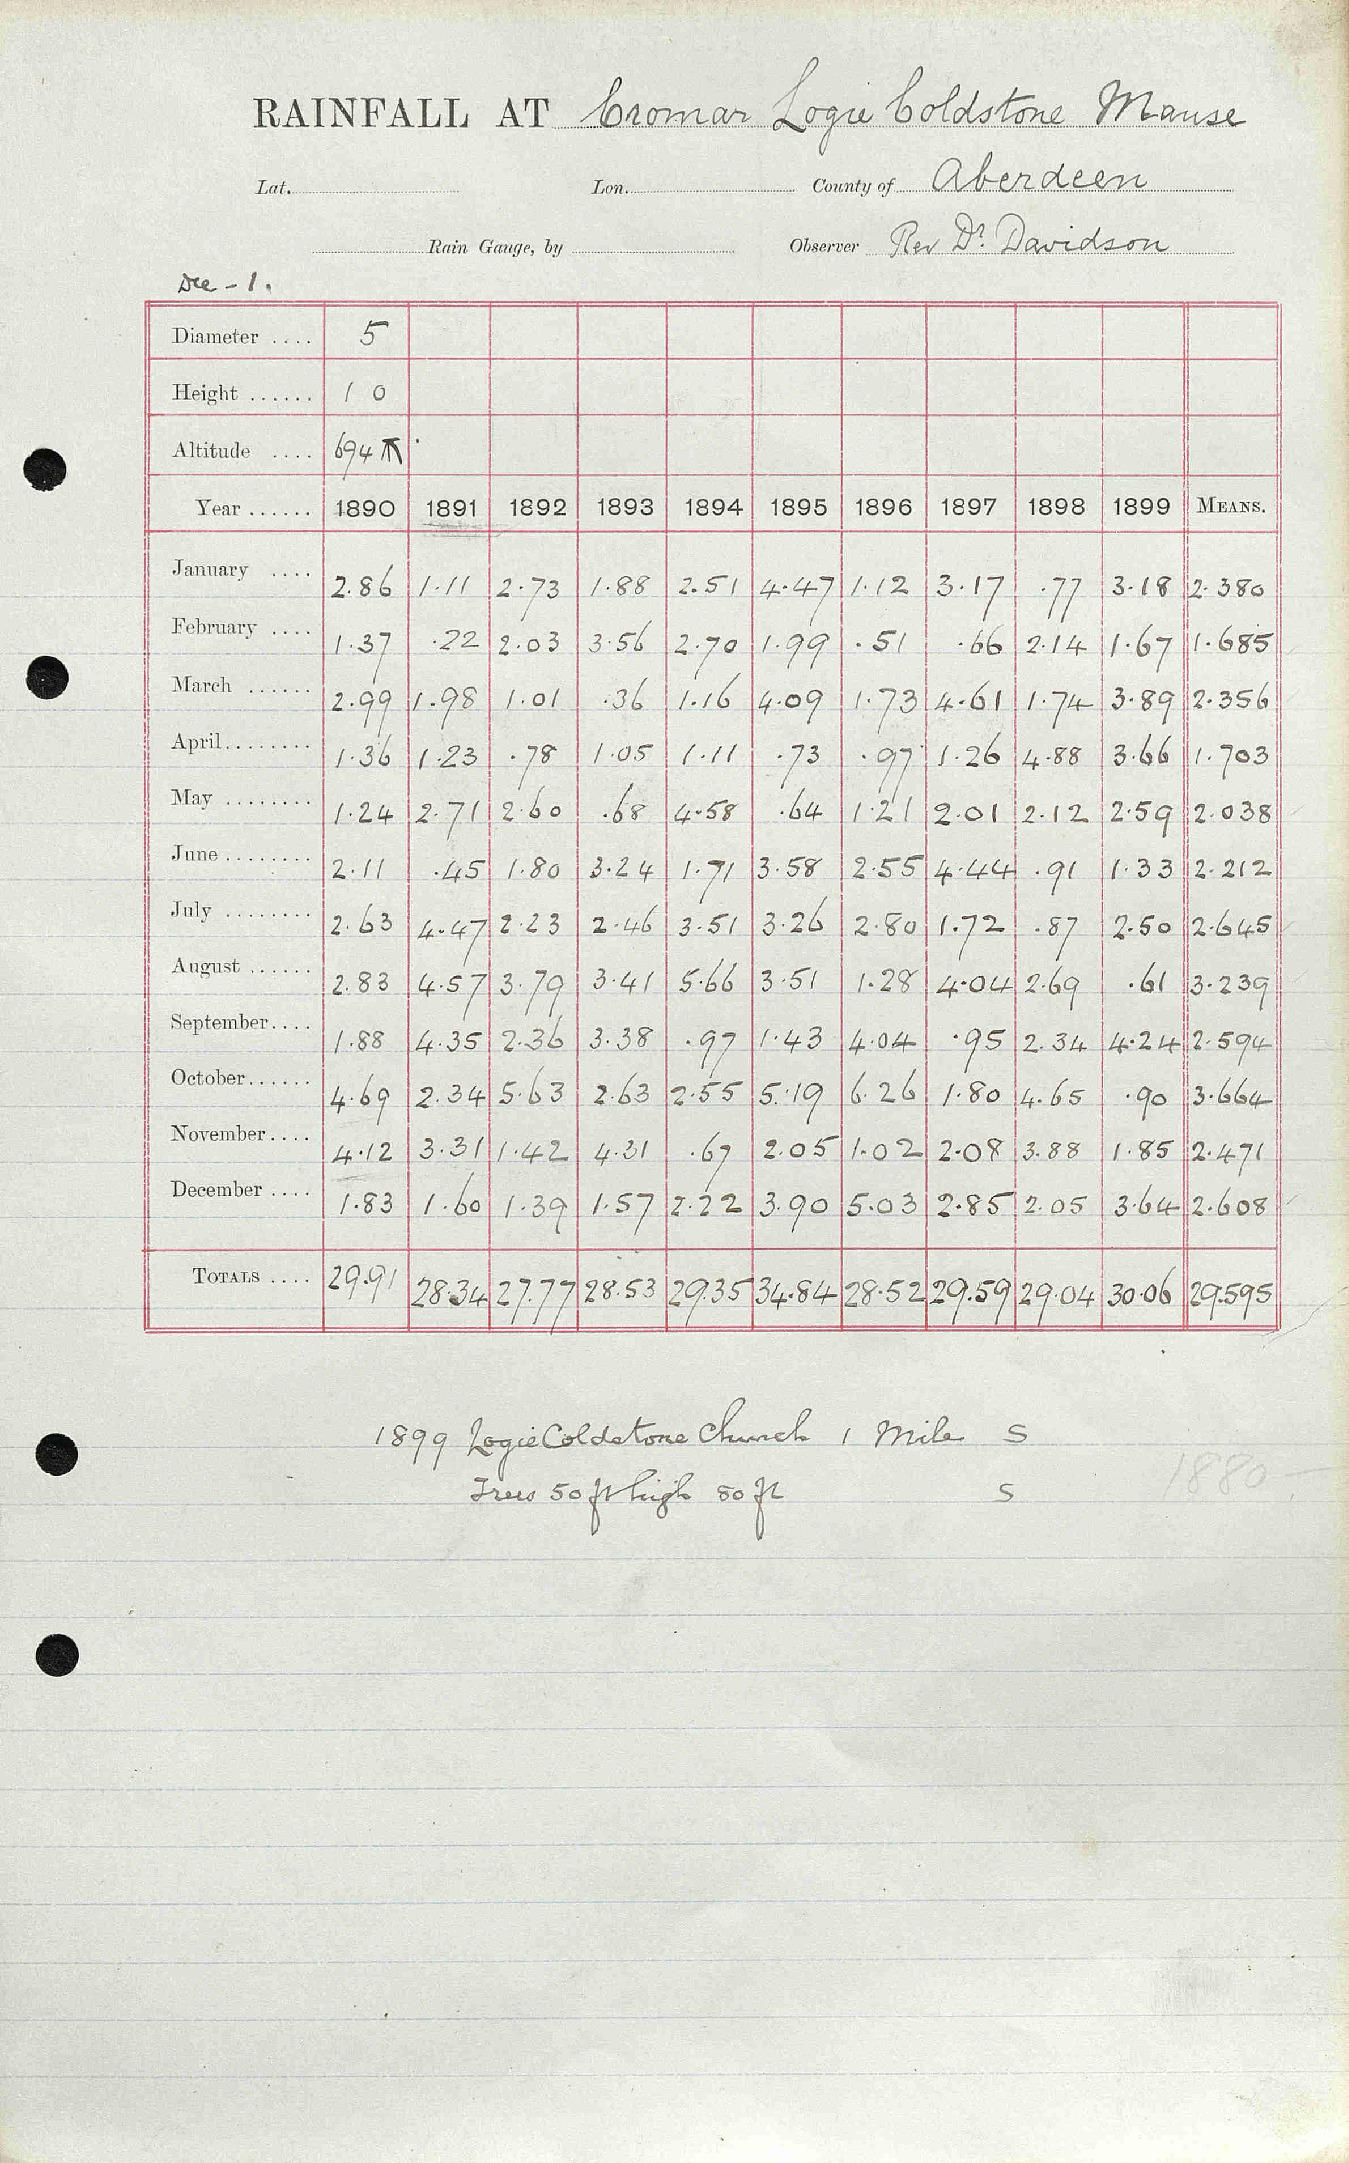 RAINFALL AT Cromar Logie Coldstone Manse
Lat. Lon. County of Aberdeen
Rain Gauge, by Observer Rev Dr. Davidson
Dee - 1.
Diameter .... 5
Height ...... 1 0
Altitude .... 694
Year ...... 1890 1891 1892 1893 1894 1895 1896 1897 1898 1899 MEANS.
January .... 2.86 1.11 2.73 1.88 2.51 4.47 1.12 3.17 .77 3.18 2.380
February .... 1.37 .22 2.03 3.56 2.70 1.99 .51 .66 2.14 1.67 1.685
March ...... 2.99 1.98 1.01 .36 1.16 4.09 1.73 4.61 1.74 3.89 2.356
April........ 1.36 1.23 .78 1.05 1.11 .73 .97 1.26 4.88 3.66 1.703
May ........ 1.24 2.71 2.60 .68 4.58 .64 1.21 2.01 2.12 2.59 2.038
June ........ 2.11 .45 1.80 3.24 1.71 3.58 2.55 4.44 .91 1.33 2.212
July ........ 2.63 4.47 2.23 2.46 3.51 3.26 2.80 1.72 .87 2.50 2.645
August ...... 2.83 4.57 3.79 3.41 5.66 3.51 1.28 4.04 2.69 .61 3.239
September.... 1.88 4.35 2.36 3.38 .97 1.43 4.04 .95 2.34 4.24 2.594
October...... 4.69 2.34 5.63 2.63 2.55 5.19 6.26 1.80 4.65 .90 3.664
November.... 4.12 3.31 1.42 4.31 .67 2.05 1.02 2.08 3.88 1.85 2.471
December .... 1.83 1.60 1.39 1.57 2.22 3.90 5.03 2.85 2.05 3.64 2.608
TOTALS .... 29.91 28.34 27.77 28.53 29.35 34.84 28.52 29.59 29.04 30.06 29.595
1899 Logie Coldstone Church 1 Mile S
Trees 50 ft high 80 ft S
1880 -